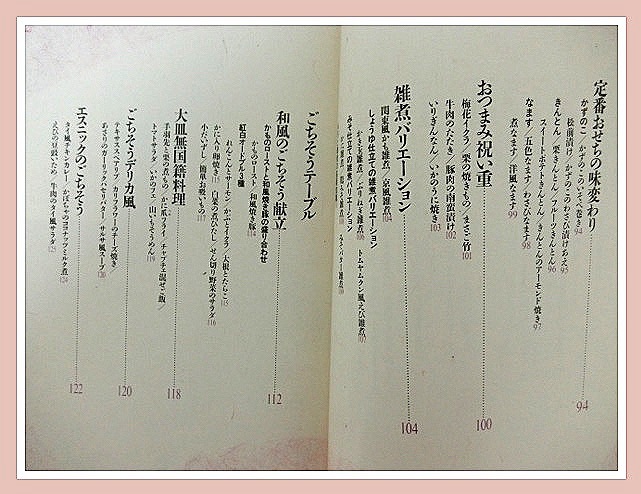 定番おせちの味変わり 94
かずのこ かずのこのいそべ巻き94
松前漬け かずのこのわさび漬けあえ95
きんとん 栗きんとん/フルーツきんとん96
スイートポテトきんとん/きんとんのアーモンド焼き97
なます 五色なます/わさびなます98
煮なます 洋風なます99
おつまみ祝い重 100
梅花イクラ/栗の焼きもの/まさご竹101
牛肉のたたき/豚肉の南蛮漬け102
いりぎんなん/いかのうに焼き103
雑煮バリエーション 104
関東風かも雑煮/京風雑煮104
しょうゆ仕立ての雑煮バリエーション
かき玉雑煮/ぶりねぎ雑煮106 トムヤムクン風えび雑煮107
みそ仕立ての雑煮バリエーション
ごちそうテーブル
和風のごちそう献立 112
かものローストと和風焼き豚の盛り合わせ
かものロース 和風焼き豚114
紅白オードブル3種
れんこんとサーモン/かぶとイクラ/大根とたらこ115
かに入り卵焼き115 白菜の煮びたし/せん切り野菜のサラダ116
小だいずし117 簡単お吸いもの117
大皿無国籍料理 118
手羽先と栗の煮もの/かに爪フライ/チャプチェ混ぜご飯/
トマトサラダ/いかのフェ/山いもそうめん119
ごちそうデリカ風 120
テキサススペアリブ/カリフラワーのチーズ焼き/
あさりのガーリックハーブバター/サルサ風スープ120
エスニックのごちそう 122
タイ風チキンカレー/かぼちゃのココナッツミルク煮124
えびの豆豉いため/牛肉のタイ風サラダ125